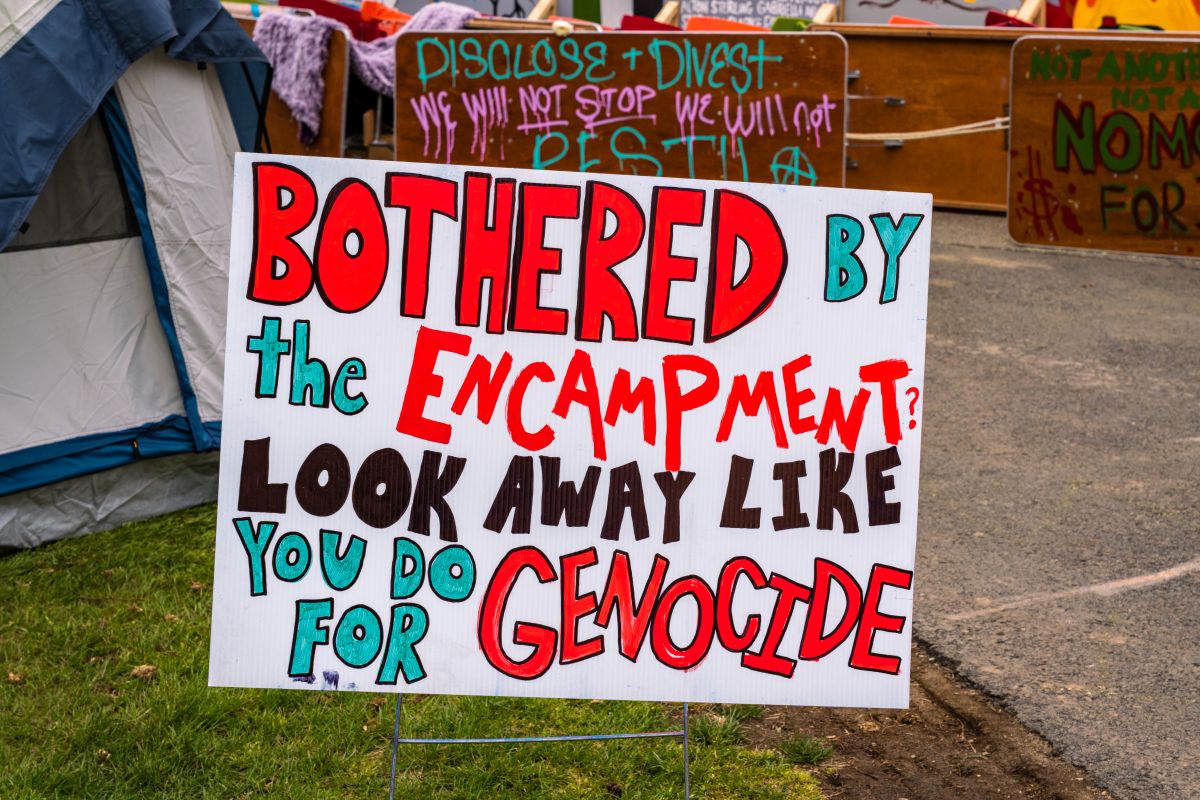 ALTON STERLING GABRIELLA
DISCLOSE + DIVEST
WE WILL NOT STOP WE WILL not
REST
NOT
NOT A
NO
FOR
BOTHERED BY
the ENCAMPMENT?
LOOK AWAY LIKE
YOU DO GENOCIDE
FOR